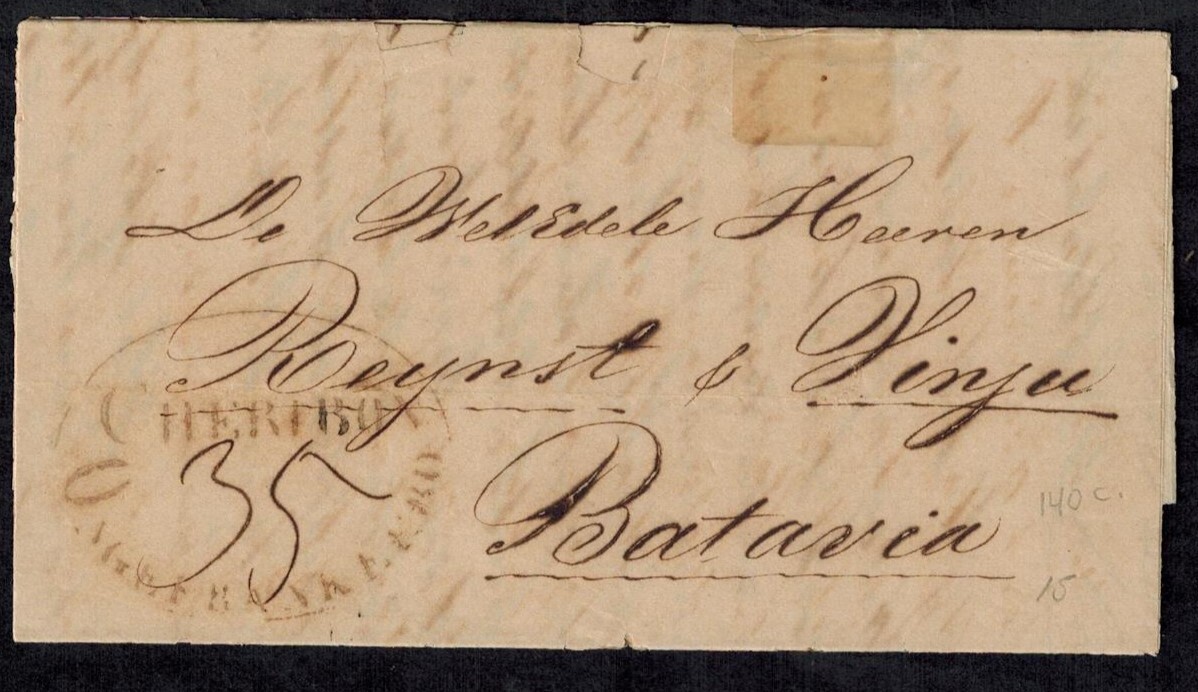 De WelEdele Heeren
Reynst & Vinju
CHERIBON
35
ONGEFRANKEERD
Batavia
140 c.
15